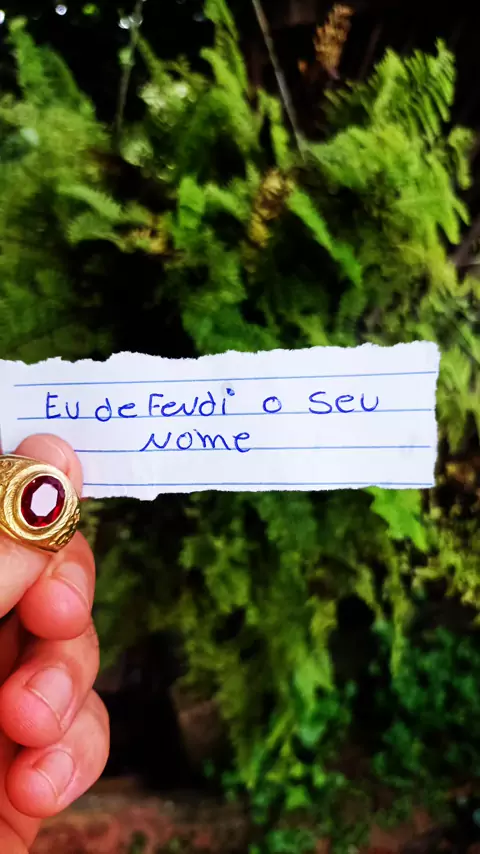 Eu defendi o seu
nome